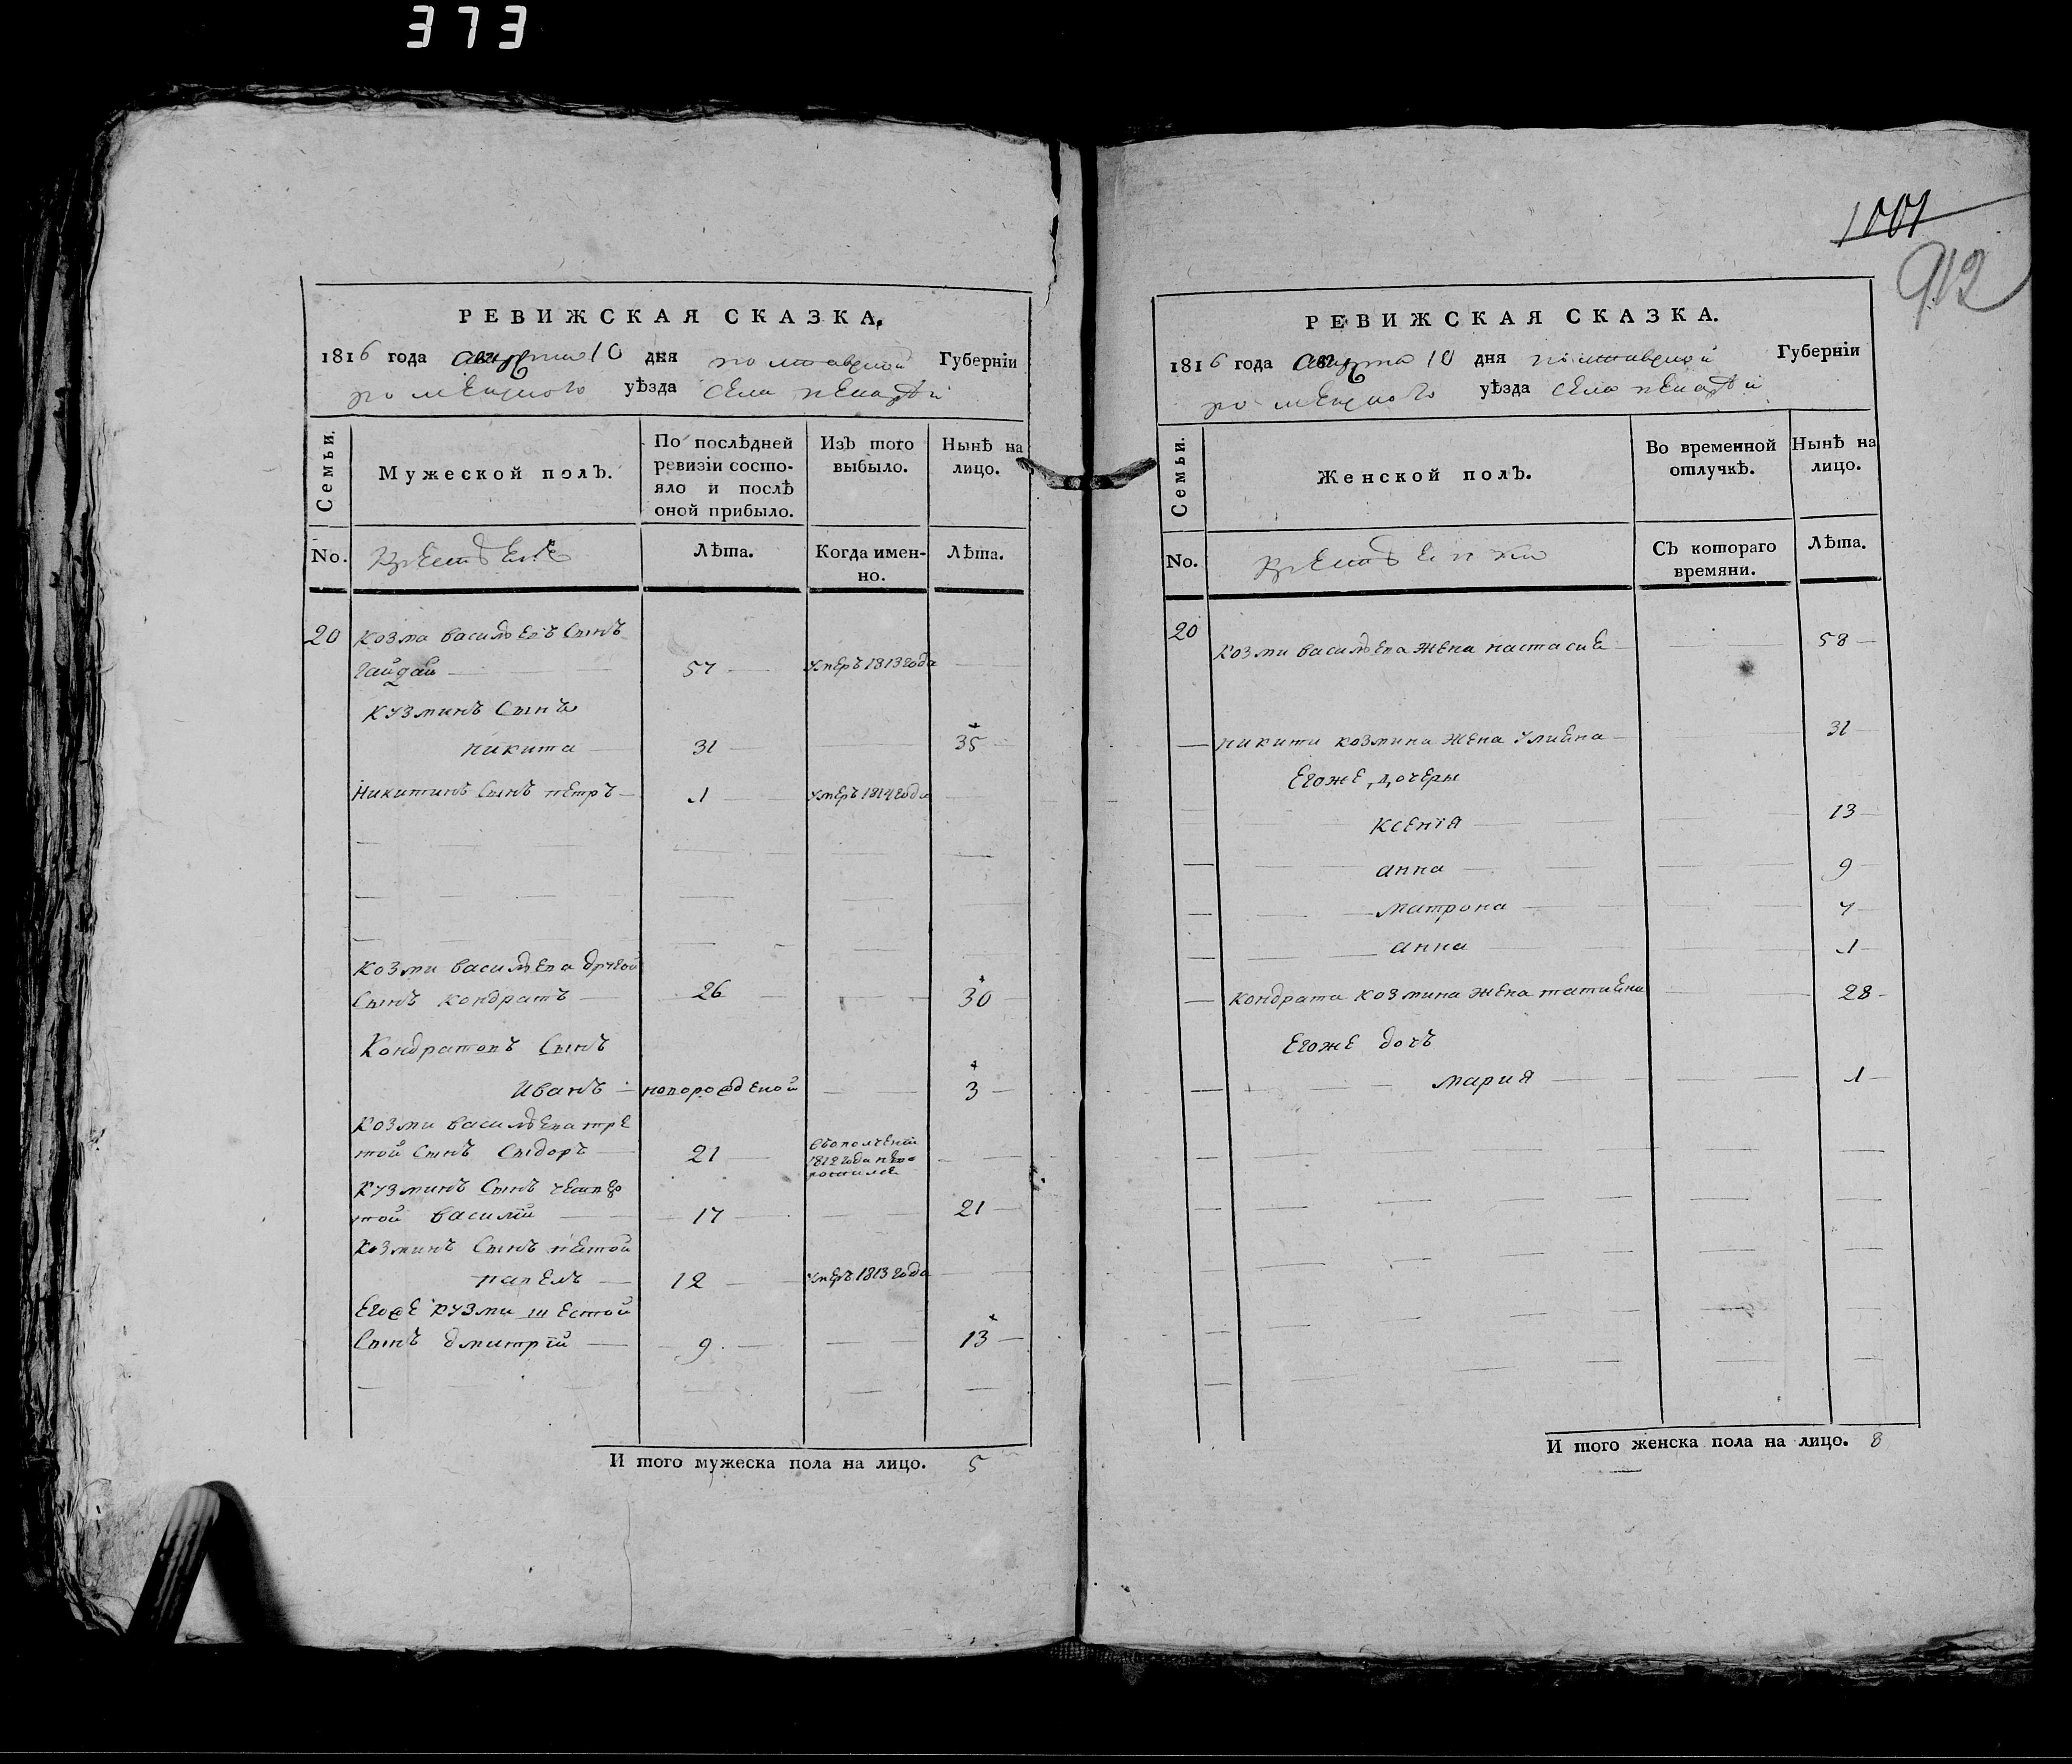 373
1001
912
РЕВИЖСКАЯ СКАЗКА.
1816 года августа 10 дня полтавской Губерніи
роменского уѣзда села
Семьи.
Мужеской полъ.
По послѣдней ревизіи состо-
яло и послѣ
оной прибыло.
Изъ того
выбыло.
Нынѣ на
лицо.
No.
Лѣта.
Когда имен-
но.
Лѣта.
20 Козма васильевъ Сынъ
Гайдай 57 умеръ 1813 года
Кузминъ Сынъ
никита 31 35
Никитинъ Сынъ петръ 1 умеръ 1814 года
Козми васильева другой
Сынъ кондратъ 26 30
Кондратовъ Сынъ
Иванъ новорожденой 3
Козми васильева тре
той Сынъ Сидоръ 21 1812 года
Кузминъ Сынъ четвер
той василій 17 21
Козминъ Сынъ пятой
павелъ 12 умеръ 1813 года
Егоже Кузми шестой
Сынъ дмитрій 9 13
И того мужеска пола на лицо. 5
РЕВИЖСКАЯ СКАЗКА.
1816 года августа 10 дня полтавской Губерніи
роменского уѣзда села
Семьи.
Женской полъ.
Во временной
отлучкѣ.
Нынѣ на
лицо.
No.
Съ котораго
времяни.
Лѣта.
20 Козми васильева жена настасия 58
никити козмина жена улияна 31
Егоже дочеры
ксенія 13
анна 9
матрона 7
анна 1
Кондрата козмина жена татияна 28
Егоже дочъ
мария 1
И того женска пола на лицо. 8